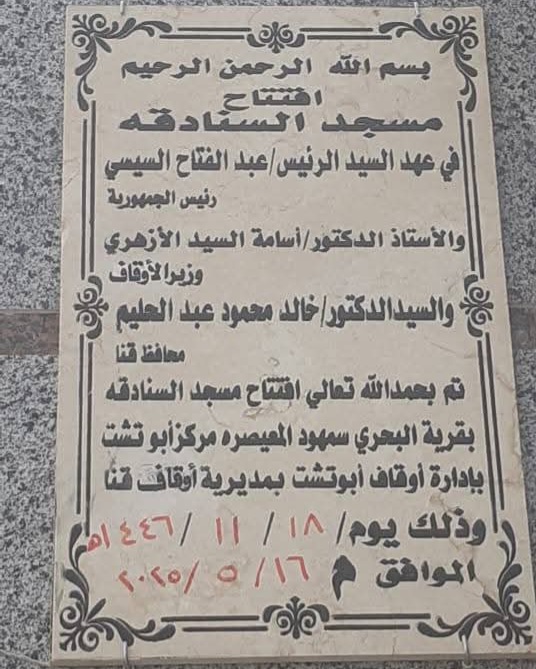 بسم الله الرحمن الرحيم
افتتاح
مسجد السنادقه
في عهد السيد الرئيس/عبد الفتاح السيسي
رئيس الجمهورية
والأستاذ الدكتور/أسامة السيد الأزهري
وزير الأوقاف
والسيد الدكتور/خالد محمود عبد الحليم
محافظ قنا
تم بحمد الله تعالي افتتاح مسجد السنادقه
بقرية البحري سمهود المعيصره مركز أبو تشت
بإدارة أوقاف أبوتشت بمديرية أوقاف قنا
وذلك يوم/ ١٨ / ١١ / ١٤٤٦هـ
الموافق م ١٦ / ٥ / ٢٠٢٥